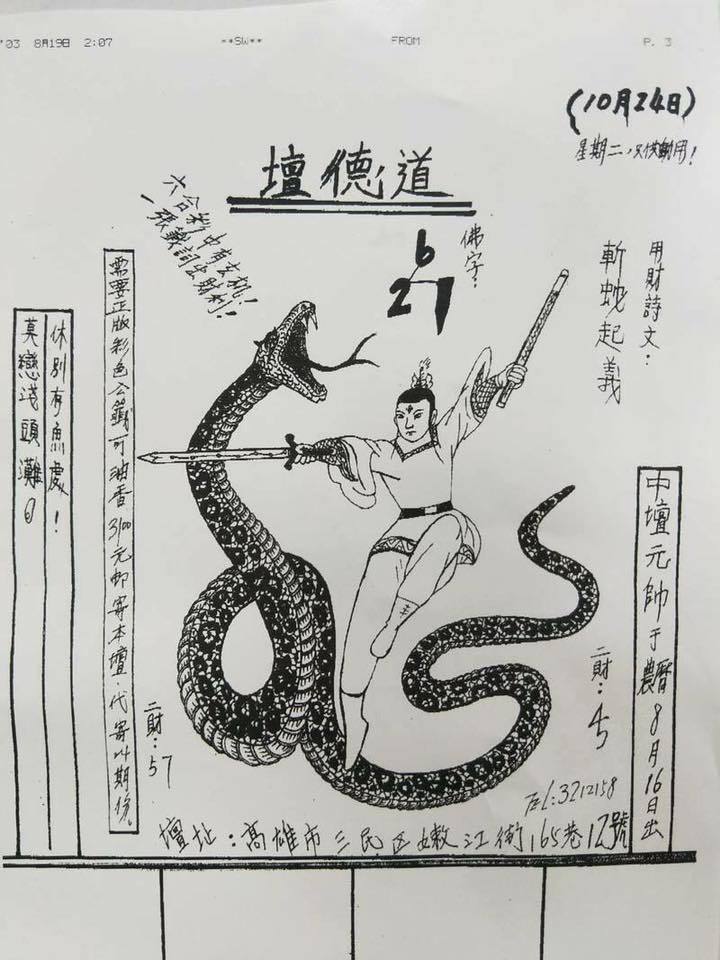 '03 8月19日 2:07 **SW** FROM P. 3
(10月24日)
星期二,只供韝用!
壇德道
六合彩中有玄机!
一張籤詞出財利!
佛字:
6
21
用財詩文:
斬蛇起義
中壇元帥于農曆8月16日出
二財:
需要正版彩色公籤可油香3100元郵寄本壇.代寄24期份。
休別有魚處!
莫戀浅頭灘。
二財:57
TEL:3212158
壇址:高雄市三民区嫩江街165巷12號